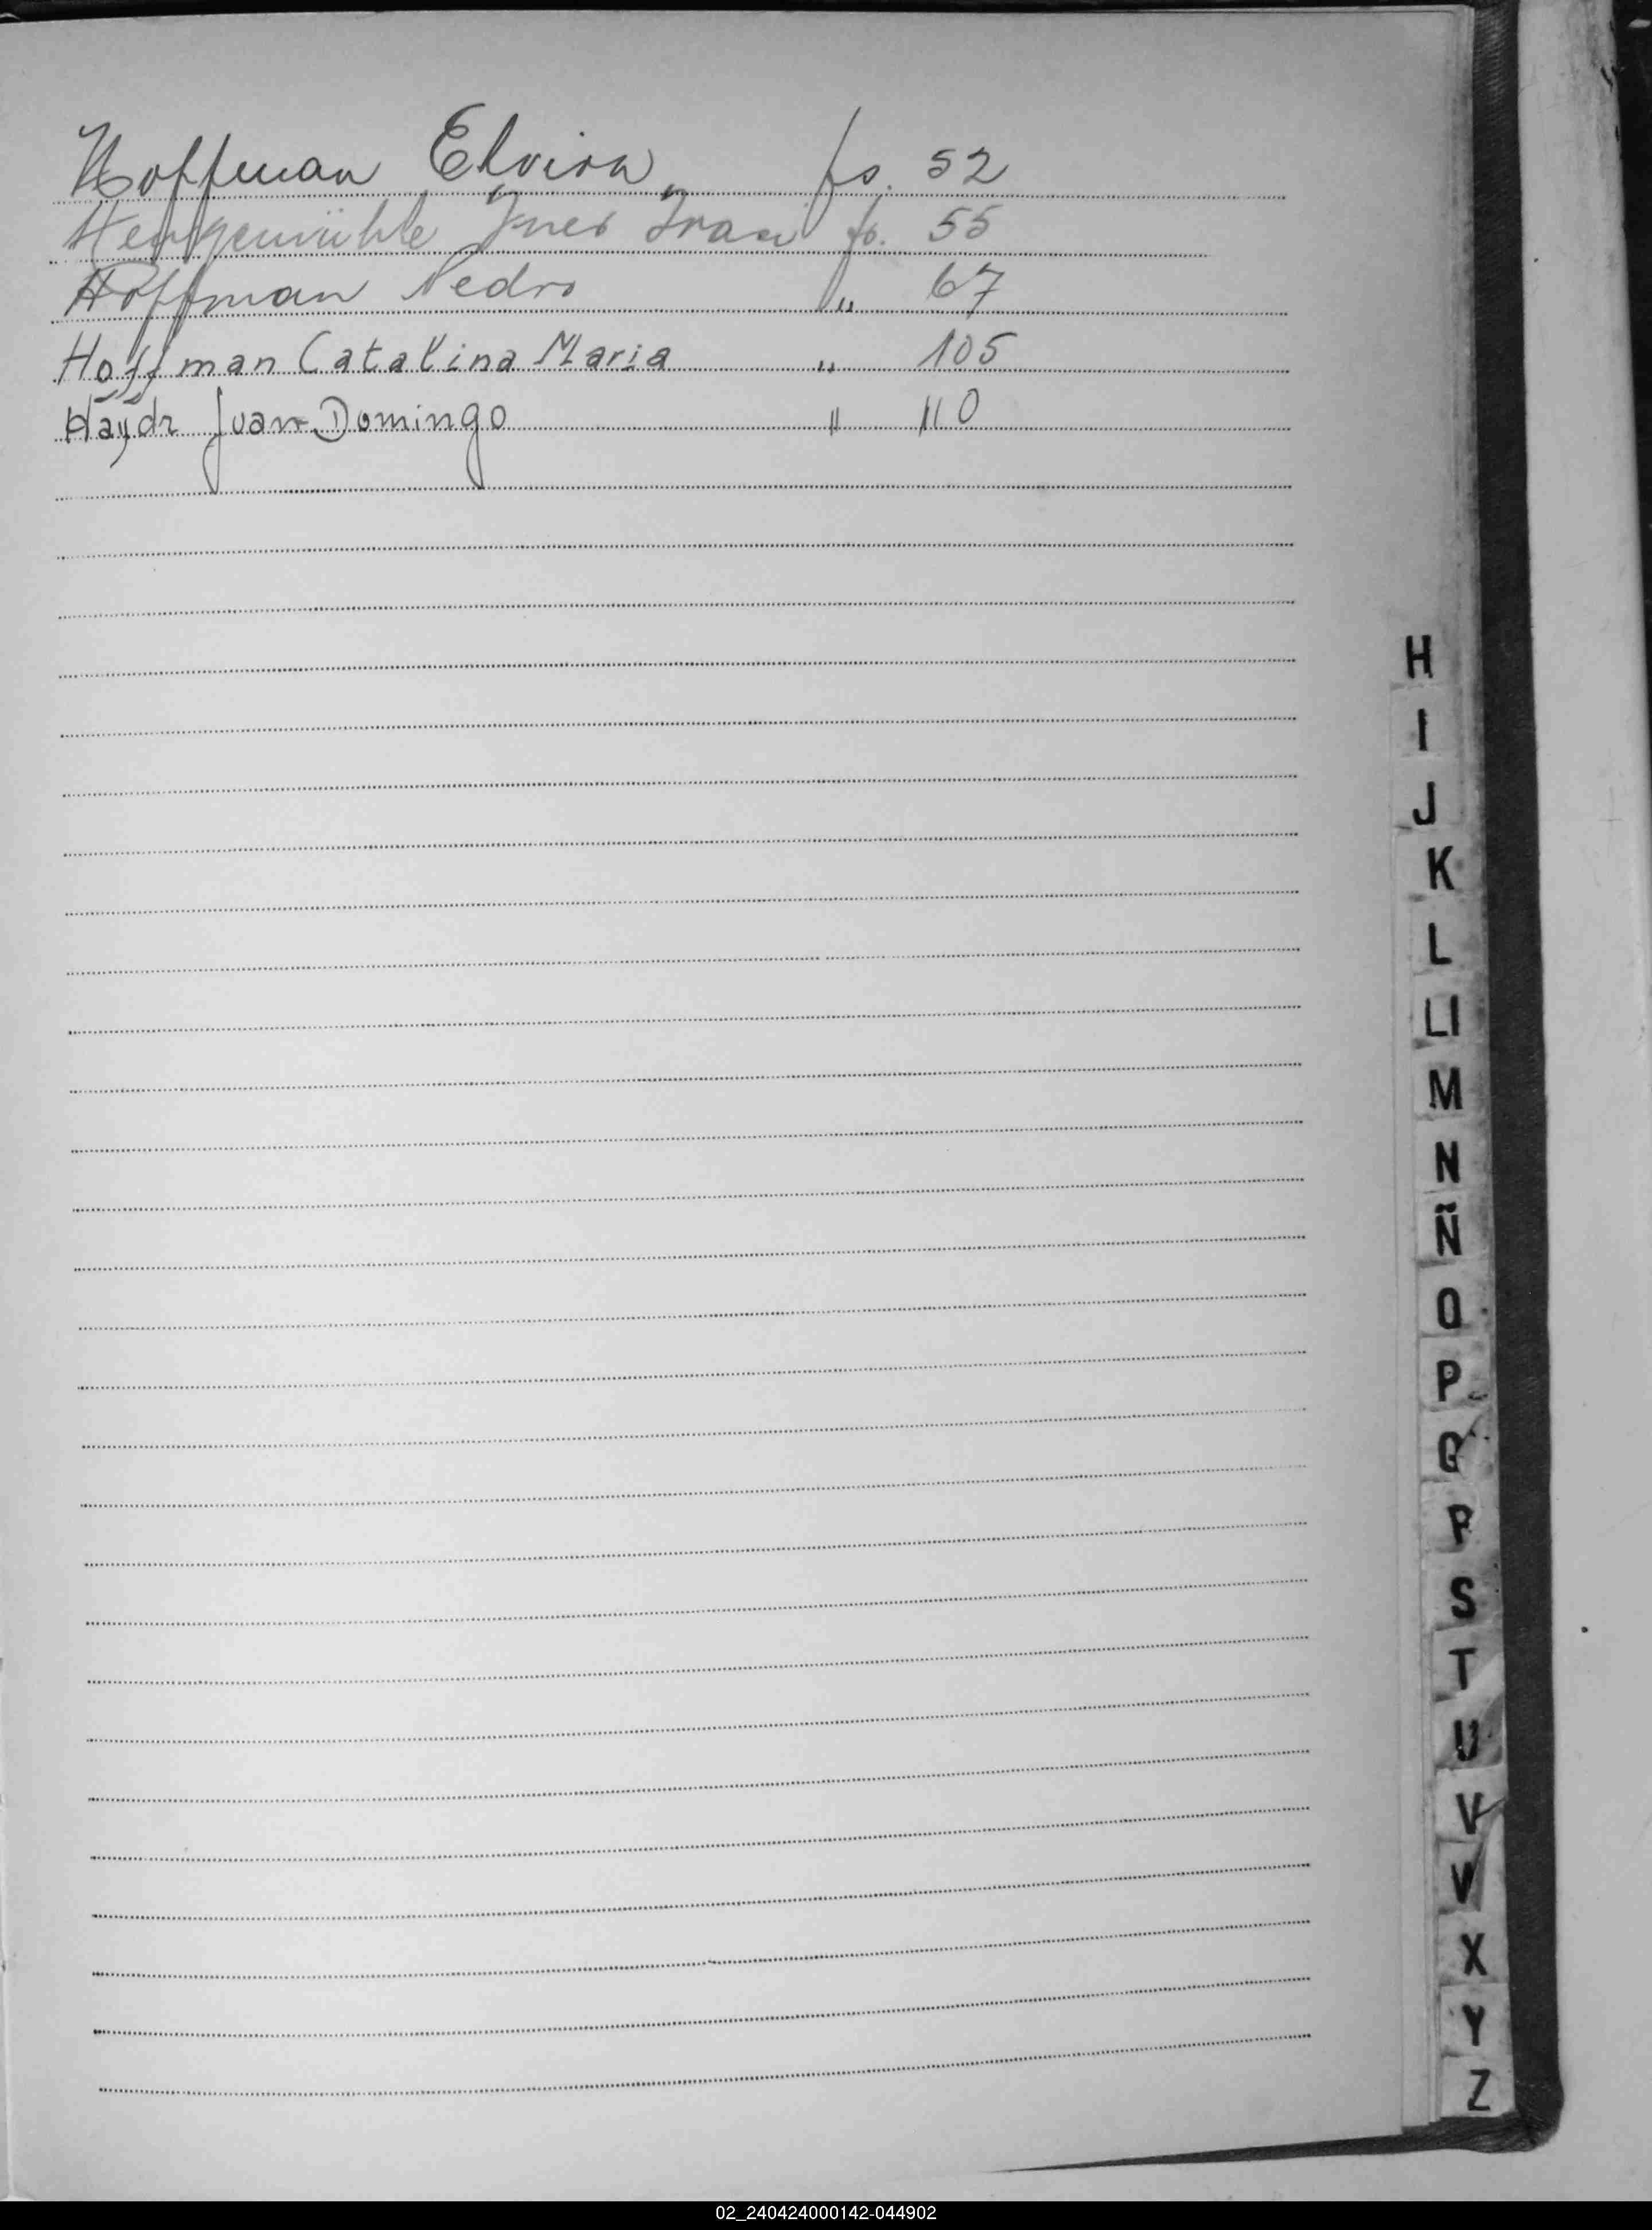 Hoffman Elvira fs. 52
Hengemühle Ines Iraci fs. 55
Hoffman Pedro " 67
Hoffman Catalina Maria " 105
Haydr Juan Domingo " 110
H
I
J
K
L
Ll
M
N
Ñ
O
P
Q
R
S
T
U
V
W
X
Y
Z
02_240424000142-044902